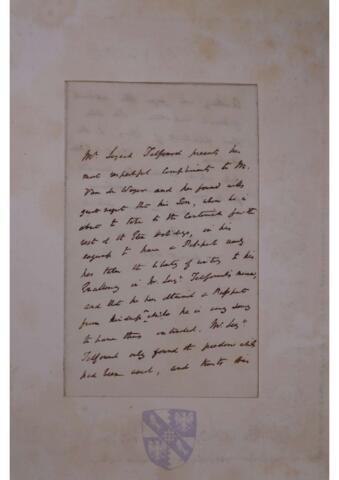 Mr. Serjeant Talfourd presents his
most respectful compliments to M.
Van de Weyer and has found with
great regret that his Son, whom he is
about to take to the Continent for the
rest of the Eton holidays, in his
to have a Passport
has taken the liberty of writing to his
Excellency in Mr. Serjt. Talfourd's name,
and that he has obtained a Passport
from which he is very sorry
to have thus intruded. Mr. Serjt.
Talfourd only found the freedom which
had been used, and